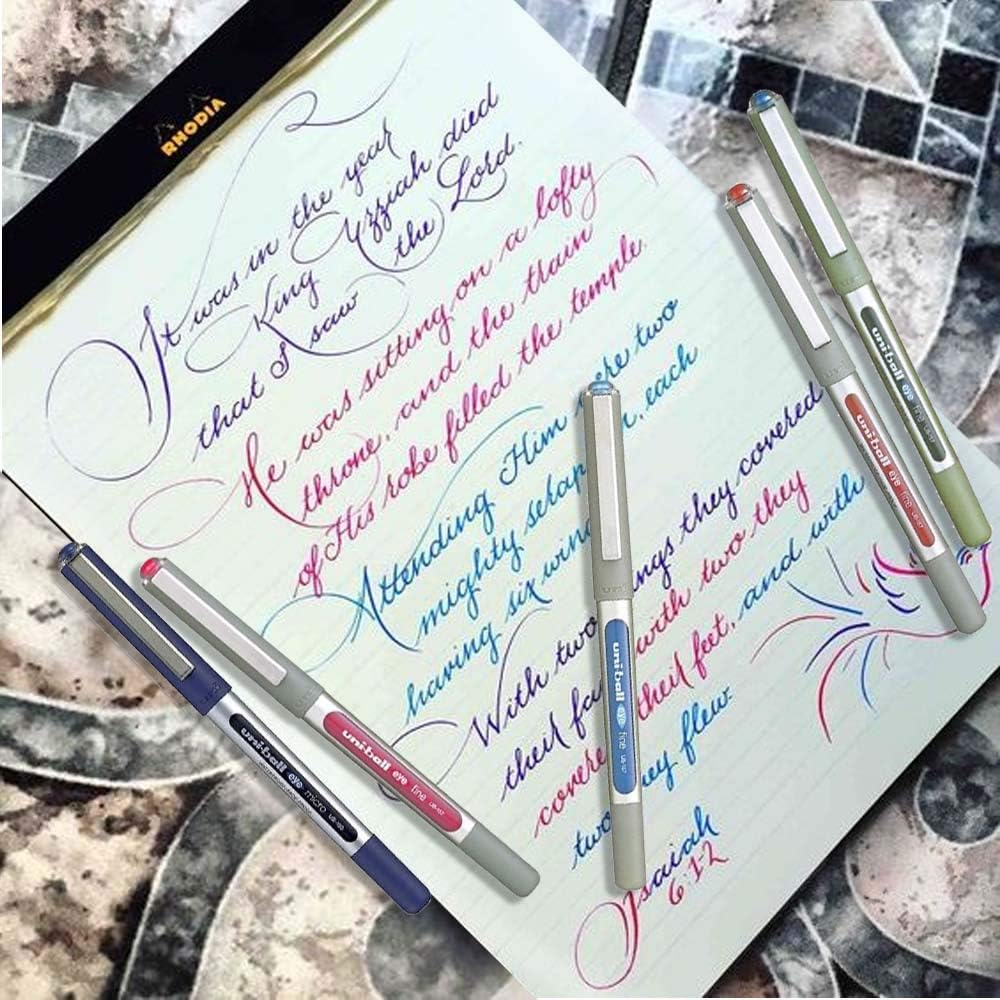 RHODIA
It was in the year
King Uzziah died
that I saw the Lord.
He was sitting on a lofty
throne, and the train
of His robe filled the temple.
Attending Him were two
mighty seraphim, each
having six wings
With two wings they covered
their fa with two they
covere their feet, and with
two they flew.
Isaiah
6:1-2
uni-ball eye micro UB-150
uni-ball eye fine UB-157
uni-ball eye fine UB-157
uni-ball eye fine UB-157
uni-ball eye fine UB-157